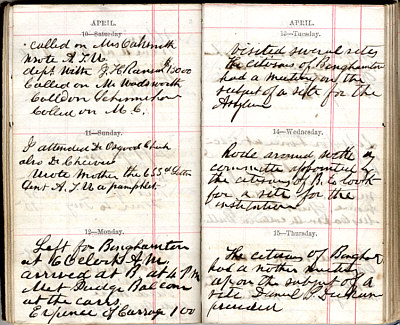 APRIL.
10—Saturday
called on Mrs
wrote A.T.W.
dept with J. H. Ransom $5000
Called on Mr Wadsworth
Called on
Called on M. C.
11—Sunday.
I attended Dr Osgood Church
also Dr Cheever
Wrote Mother the 655th letter
Sent A.T.W a pamphlet.
12—Monday.
Left for Binghamton
at 6 Oclock A.M.
arrived at B. at 4 P.M
Met Judge Balcom
at the cars.
Expence of Carrage 1 00
APRIL.
13—Tuesday.
Visited several sites
the citizens of Binghamton
had a meeting on the
subject of a site for the
Asylum
14—Wednesday.
Rode around with a
committee appointed by
the citizens of B. to look
for a site for the
institution
15—Thursday.
The citizens of
had a nother meeting
upon the subject of a
site Daniel S. Dickinson
presided